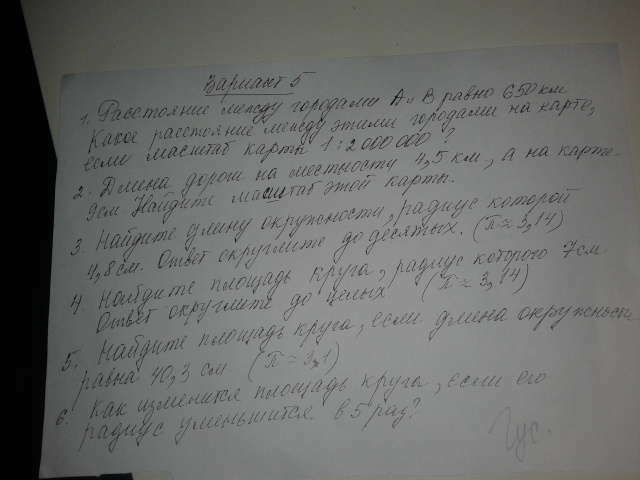 Вариант 5
1. Расстояние между городами А и В равно 650 км.
Какое расстояние между этими городами на карте,
если масштаб карты 1:2 000 000?
2. Длина дороги на местности 4,5 км, а на карте
9см. Найдите масштаб этой карты.
3. Найдите длину окружности, радиус которой
4,8 см. Ответ округлите до десятых. (π ≈ 3,14)
4. Найдите площадь круга, радиус которого 7см.
Ответ округлите до целых (π ≈ 3,14)
5. Найдите площадь круга, если длина окружности
равна 40,3 см (π ≈ 3,1)
6. Как изменится площадь круга, если его
радиус уменьшить в 5 раз?